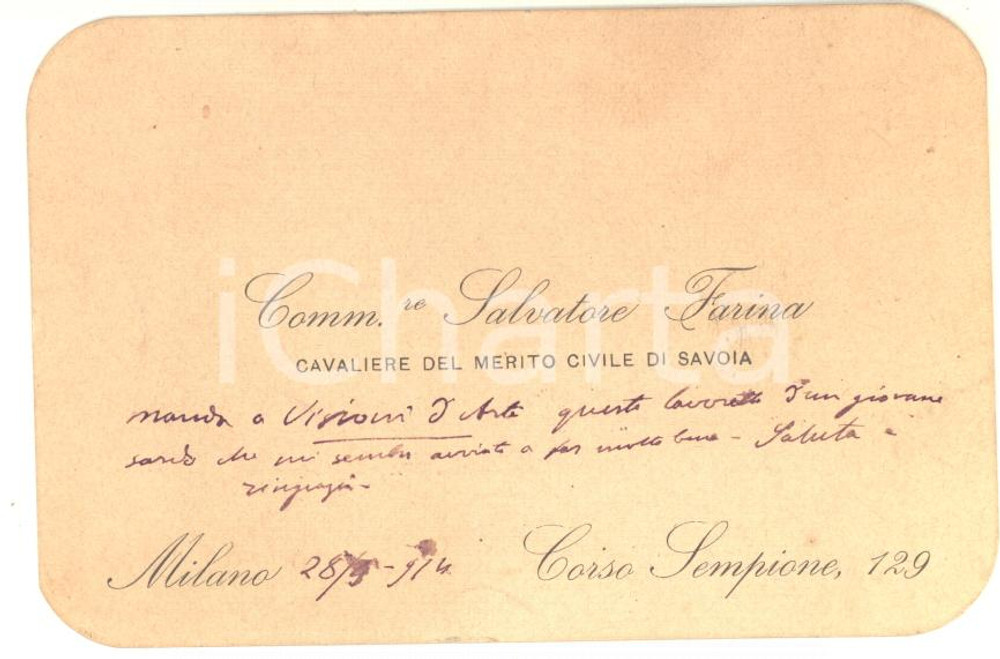 Comm.re Salvatore Farina
CAVALIERE DEL MERITO CIVILE DI SAVOIA
manda a Visioni d'Arte questo lavoretto d'un giovane
sardo che mi sembra avviato a far molto bene - Saluta e
ringrazia -
Milano 28/5 - 914 Corso Sempione, 129
iCharta